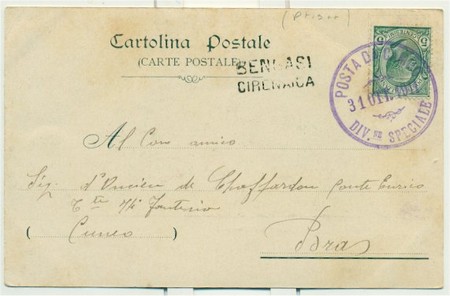 Cartolina Postale
(CARTE POSTALE)
BENGASI
CIRENAICA
POSTA DA
31 OTT.
DIV.NE SPECIALE
Al Con amico
Sig. d'Oncieu de Chaffardon Conte Enrico
74 Fanteria
(Cuneo)
Bra